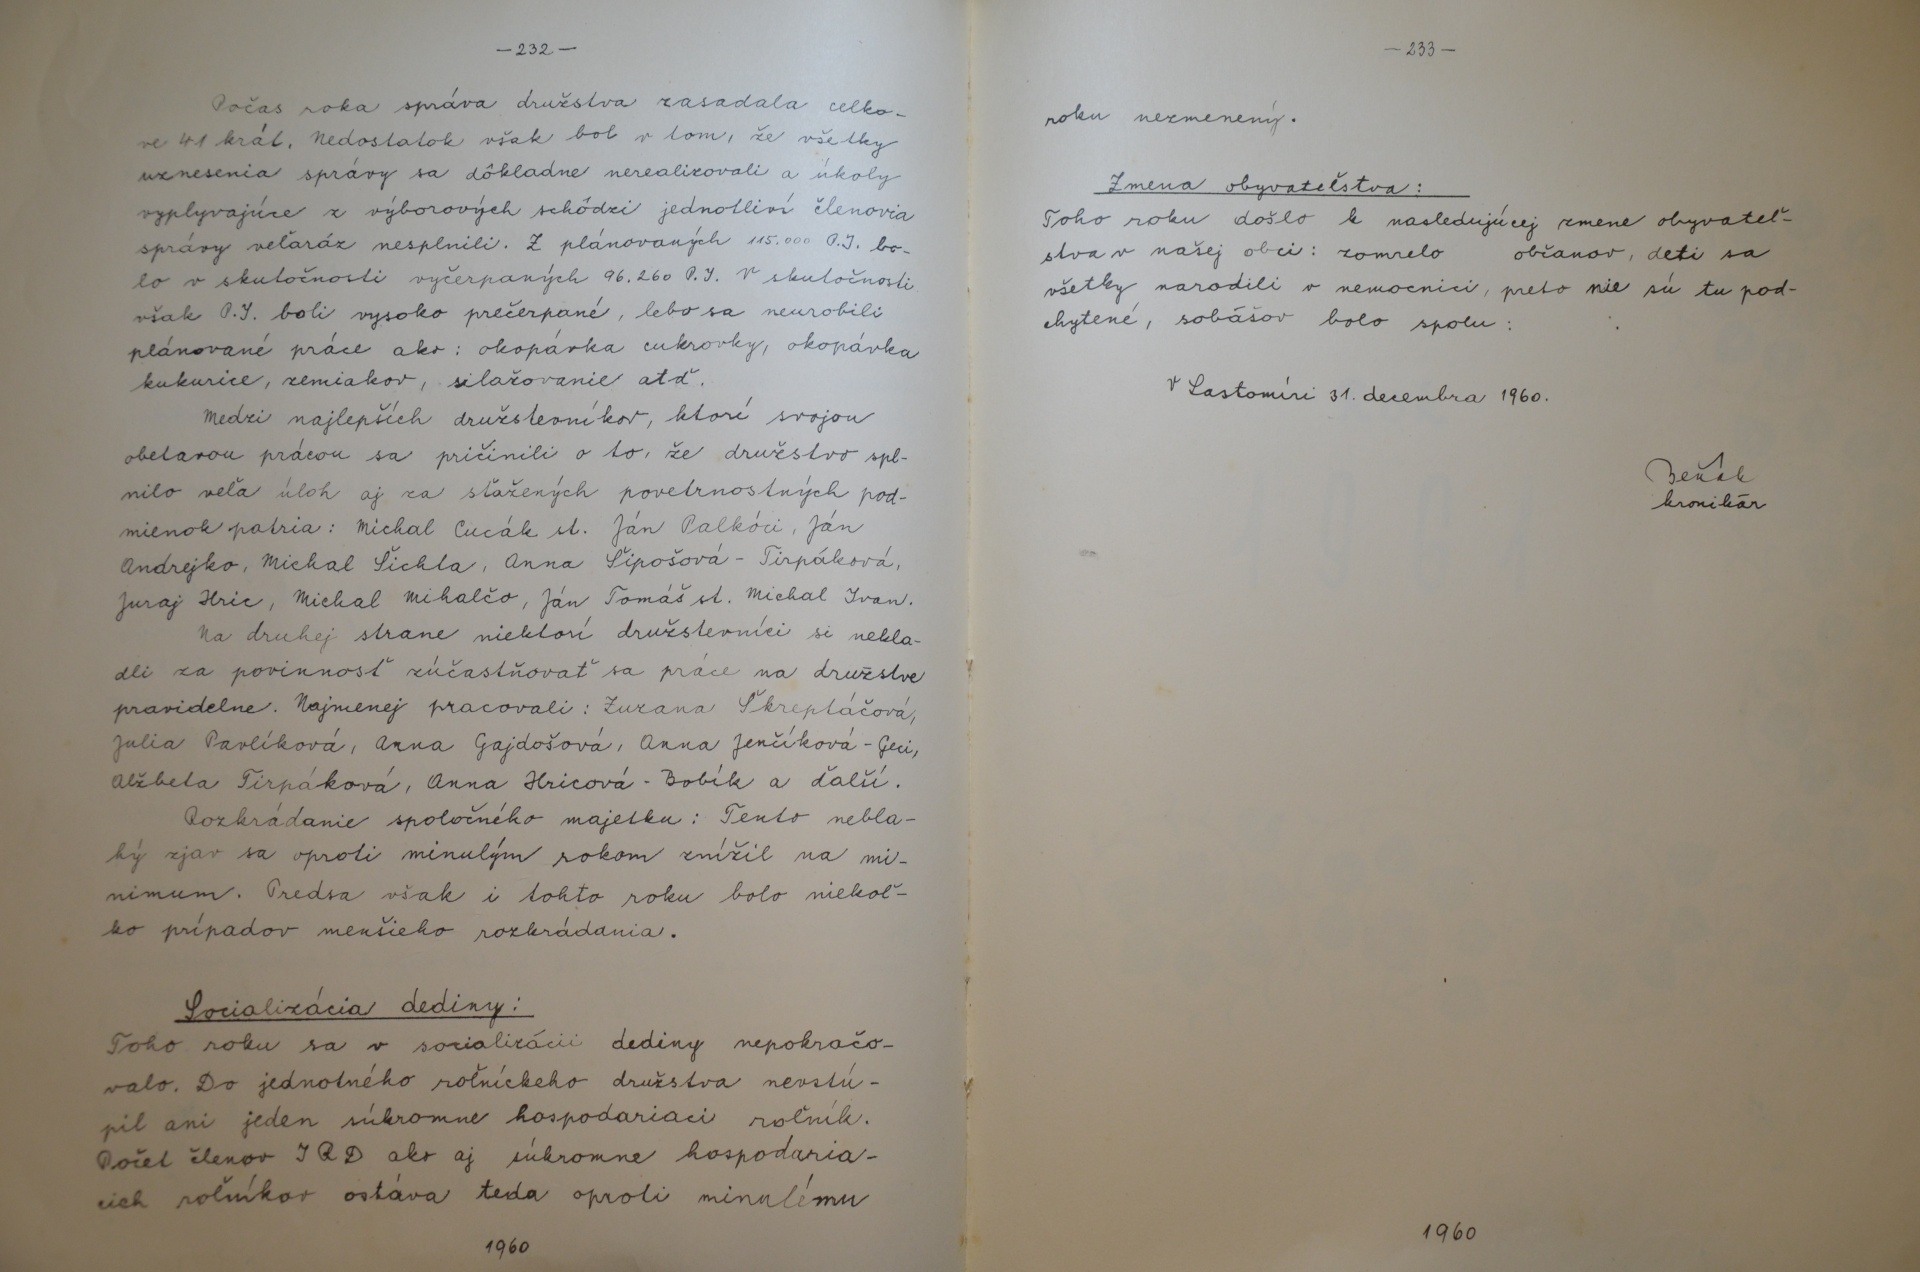 — 232 —
Počas roka správa družstva zasadala celko-
ve 41 krát. Nedostatok však bol v tom, že všetky
uznesenia správy sa dôkladne nerealizovali a úkoly
vyplyvajúce z výborových schôdzí jednotliví členovia
správy veľaráz nesplnili. Z plánovaných 115.000 P.J. bo-
lo v skutočnosti vyčerpaných 96.260 P.J. V skutočnosti
však P.J. boli vysoko prečerpané, lebo sa neurobili
plánované práce ako: okopávka cukrovky, okopávka
kukurice, zemiakov, silažovanie atď.
Medzi najlepších družstevníkov, ktorí svojou
obetavou prácou sa pričinili o to, že družstvo spl-
nilo veľa úloh aj za sťažených povetrnostných pod-
mienok patria: Michal Cucák st. Ján Palkóci, Ján
Andrejko, Michal Šichta, Anna Šipošová - Tirpáková,
Juraj Hric, Michal Mihalčo, Ján Tomáš st. Michal Ivan.
Na druhej strane niektorí družstevníci si nekla-
dli za povinnosť zúčastňovať sa práce na družstve
pravidelne. Najmenej pracovali: Zuzana Škreptáčová,
Julia Pavlíková, Anna Gajdošová, Anna Jenčíková - Geci,
Alžbeta Tirpáková, Anna Hricová - Bobík a ďalší.
Rozkrádanie spoločného majetku: Tento nebla-
hý zjav sa oproti minulým rokom znížil na mi-
nimum. Predsa však i tohto roku bolo niekoľ-
ko prípadov menšieho rozkrádania.
Socializácia dediny:
Toho roku sa v socializácii dediny nepokračo-
valo. Do jednotného roľníckeho družstva nevstú-
pil ani jeden súkromne hospodariaci roľník.
Počet členov JRD ako aj súkromne hospodaria-
cich roľníkov ostáva teda oproti minulému
1960
— 233 —
roku nezmenený.
Zmena obyvateľstva:
Toho roku došlo k nasledujúcej zmene obyvateľ-
stva v našej obci: zomrelo občanov, deti sa
všetky narodili v nemocnici, preto nie sú tu pod-
chytené, sobášov bolo spolu:
V Lastomíri 31. decembra 1960.
Beňák
kronikár
1960